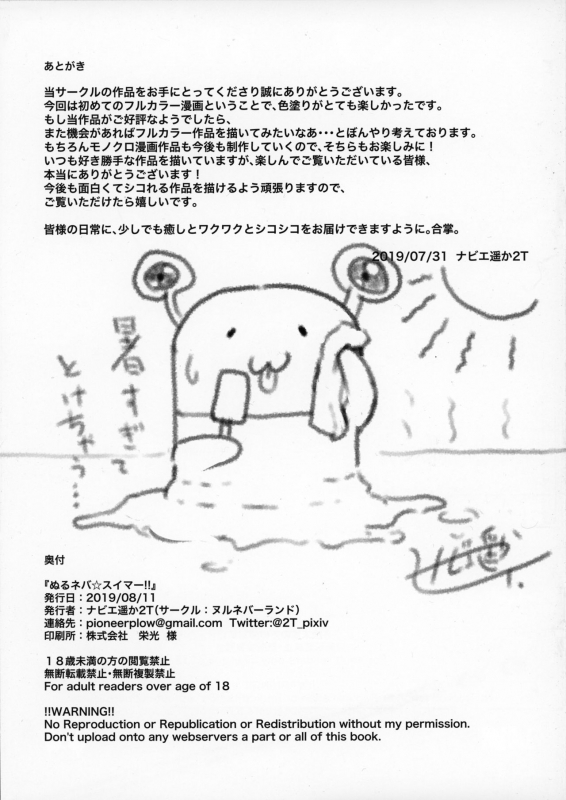 あとがき
当サークルの作品をお手にとってくださり誠にありがとうございます。
今回は初めてのフルカラー漫画ということで、色塗りがとても楽しかったです。
もし当作品がご好評なようでしたら、
また機会があればフルカラー作品を描いてみたいなあ・・・とぼんやり考えております。
もちろんモノクロ漫画作品も今後も制作していくので、そちらもお楽しみに！
いつも好き勝手な作品を描いていますが、楽しんでご覧いただいている皆様、
本当にありがとうございます！
今後も面白くてシコれる作品を描けるよう頑張りますので、
ご覧いただけたら嬉しいです。
皆様の日常に、少しでも癒しとワクワクとシコシコをお届けできますように。合掌。
2019/07/31 ナビエ遥か2T
暑すぎて
とけちゃう…
ナビエ遥か2T.
奥付
『ぬるネバ☆スイマー!!』
発行日：2019/08/11
発行者：ナビエ遥か2T（サークル：ヌルネバーランド）
連絡先：pioneerplow@gmail.com Twitter:@2T_pixiv
印刷所：株式会社 栄光 様
１８歳未満の方の閲覧禁止
無断転載禁止・無断複製禁止
For adult readers over age of 18
!!WARNING!!
No Reproduction or Republication or Redistribution without my permission.
Don't upload onto any webservers a part or all of this book.